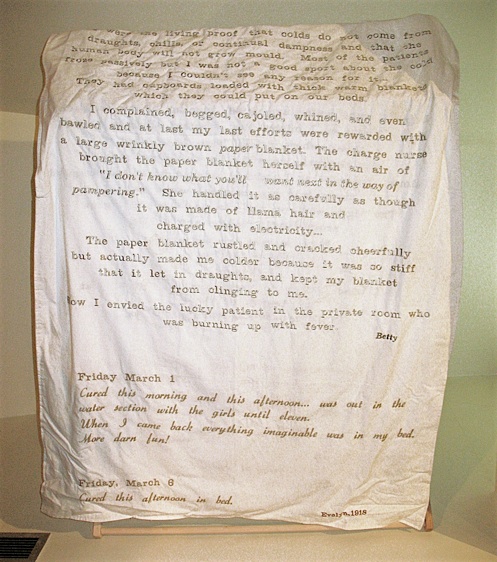 were the living proof that colds do not come from
draughts, chills, or continual dampness and that the
human body will not grow mould. Most of the patients
froze passively but I was not a good sport about the cold
because I couldn't see any reason for it...
They had cupboards loaded with thick warm blankets
which they could put on our beds.
I complained, begged, cajoled, whined, and even
bawled and at last my last efforts were rewarded with
a large wrinkly brown paper blanket. The charge nurse
brought the paper blanket herself with an air of
"I don't know what you'll want next in the way of
pampering." She handled it as carefully as though
it was made of llama hair and
charged with electricity...
The paper blanket rustled and cracked cheerfully
but actually made me colder because it was so stiff
that it let in draughts, and kept my blanket
from clinging to me.
ow I envied the lucky patient in the private room who
was burning up with fever.
Betty
Friday March 1
Cured this morning and this afternoon... was out in the
water section with the girls until eleven.
When I came back everything imaginable was in my bed.
More darn fun!
Friday, March 6
Cured this afternoon in bed.
Evelyn, 1918